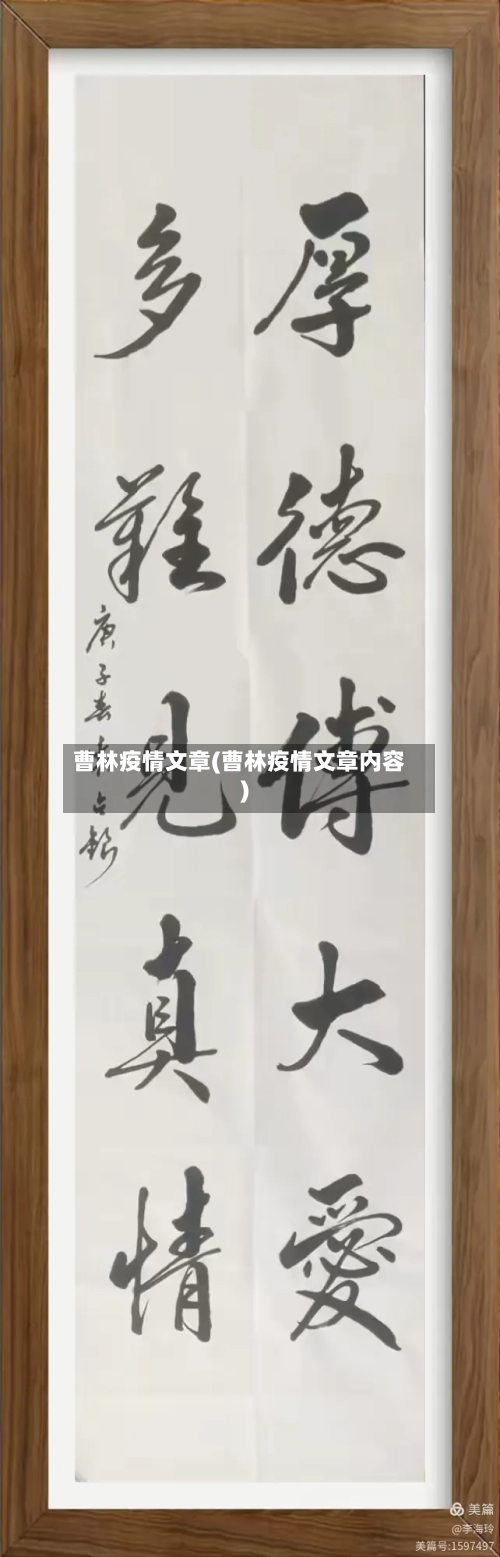 厚德傳大愛
多難見真情
庚子春 占銀
曹林疫情文章(曹林疫情文章内容
)
美篇
@李海玲
美篇号:1597497